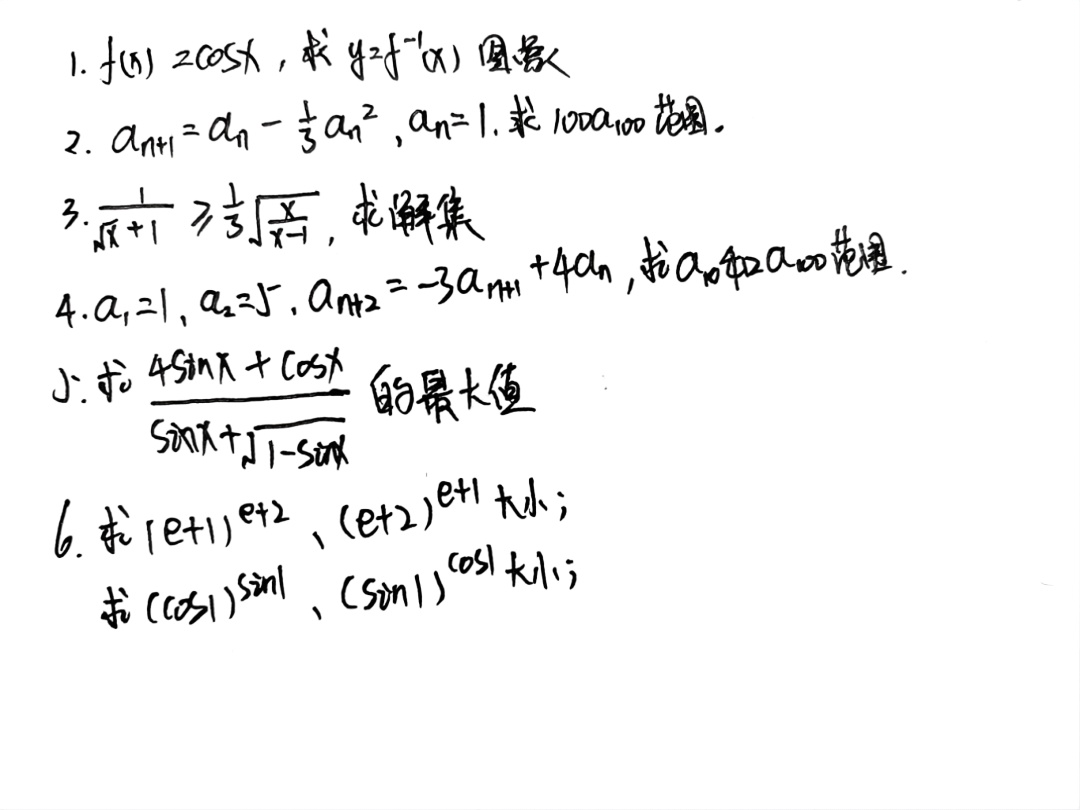 1. f(x)=cosx,求 y=f⁻¹(x)
2. aₙ₊₁=aₙ-1/3aₙ²,aₙ=1.求100a₁₀₀范围.
3. 1/(√x+1)≥1/3√(x/(x-1)),求解集
4. a₁=1,a₂=5,aₙ₊₂=-3aₙ₊₁+4aₙ,求a₁₀和a₁₀₀范围.
5.求(4sinx+cosx)/(sinx+√(1-sinx))的最大值
6.求(e+1)^(e+2)、(e+2)^(e+1)大小;
求(cos1)^(sin1)、(sin1)^(cos1)大小;